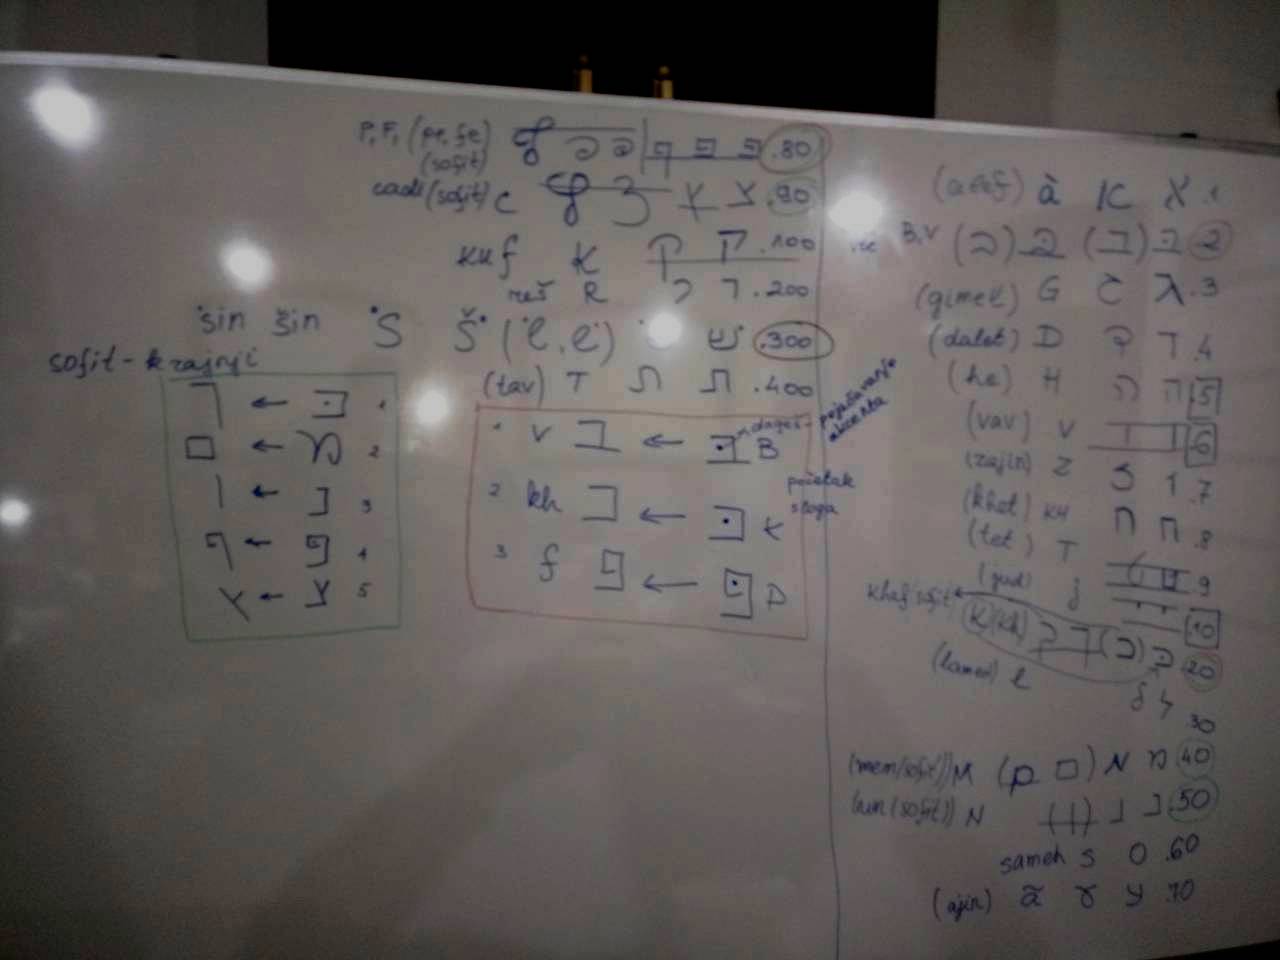 (alef) à K א .1
B,V (בּ) ב 2
(gimel) G ג .3
(dalet) D ד .4
(he) H ה 5
(vav) V 6
(zajin) Z ז .7
(khet) KH ח .8
(tet) T 9
(jud) j 10
khaf sofit K (kh) (כ) כ 20
(lamed) l .30
(mem(sofit)) M (ם) מ 40
(nun(sofit)) N נ .50
sameh S O .60
(ajin) ע .70
P, F, (pe, fe) (sofit) .80
cadi (sofit) C .90
kuf K ק .100
reš R ר .200
śin šin Ś Š ש .300
(tav) T ת .400
sofit - krajnji
ך ← כּ 1
ם ← מ 2
ן ← נ 3
ף ← פ 4
ץ ← צ 5
dageš - pojačavanje akcenta
1 V ב ← בּ B
početak sloga
2 kh כ ← כּ K
3 f פ ← פּ P